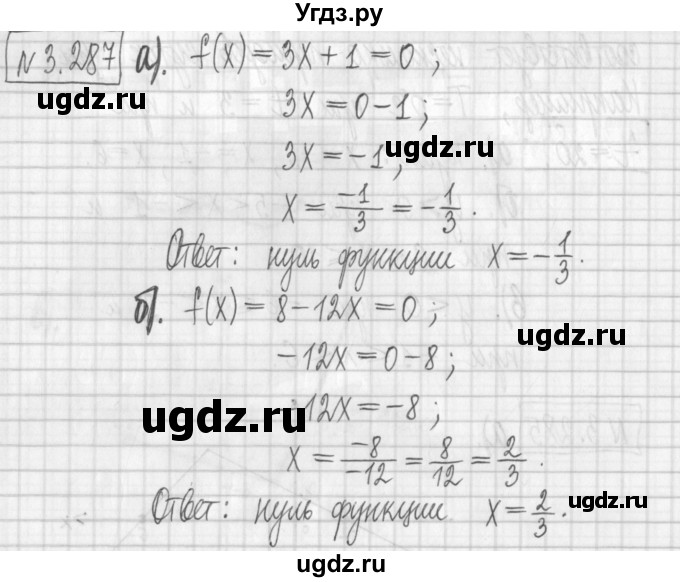 Угдз.ру
№3.287 а). f(x) = 3x + 1 = 0 ;
ugdz.ru
3x = 0 - 1 ;
ugdz.ru
3x = -1 ;
x = -1/3 = -1/3 .
Ответ: нуль функции x = -1/3 .
б). f(x) = 8 - 12x = 0 ;
ugdz.ru
-12x = 0 - 8 ;
ugdz.ru
12x = -8 ;
x = -8/-12 = 8/12 = 2/3 .
ugdz.ru
Ответ: нуль функции x = 2/3 .
ugdz.ru
ugdz.ru